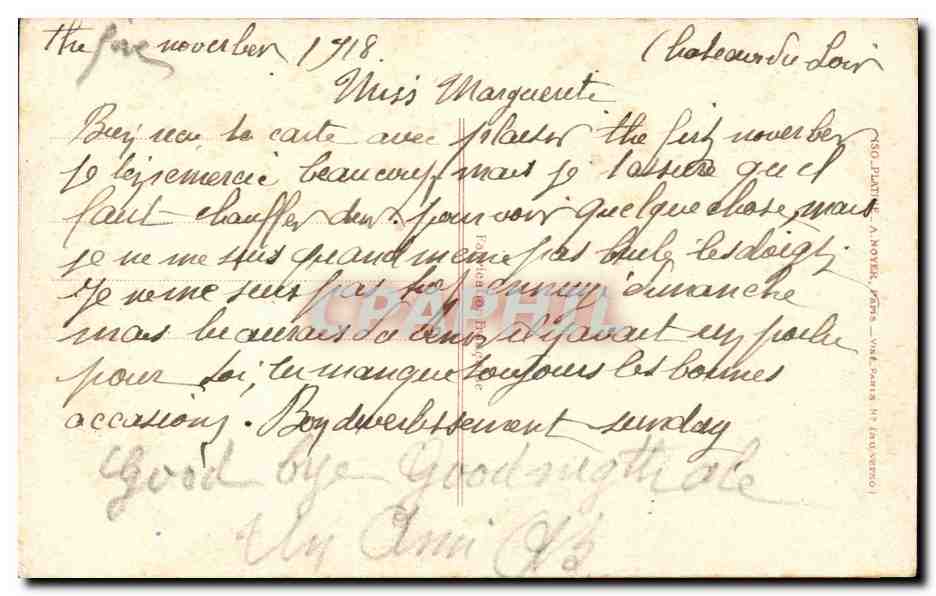 the five november 1918. Chateau du Loir
Miss Marguerite
Bien reçu ta carte avec plaisir the first november
je t'en remercie beaucoup, mais je t'assure qu'il
faut chauffer dur. pour voir quelque chose, mais
je ne me suis quand meme pas brulé les doigts
Je ne me suis pas trop ennuyé dimanche
mais tu aurais du venir il y avait un poilu
pour toi, tu manque toujours les bonnes
accasions. Bon divertissement sunday
Good bye Good
Un Ami
Fabrication Française
A. NOYER, PARIS — VISÉ, PARIS N°
CPARHI